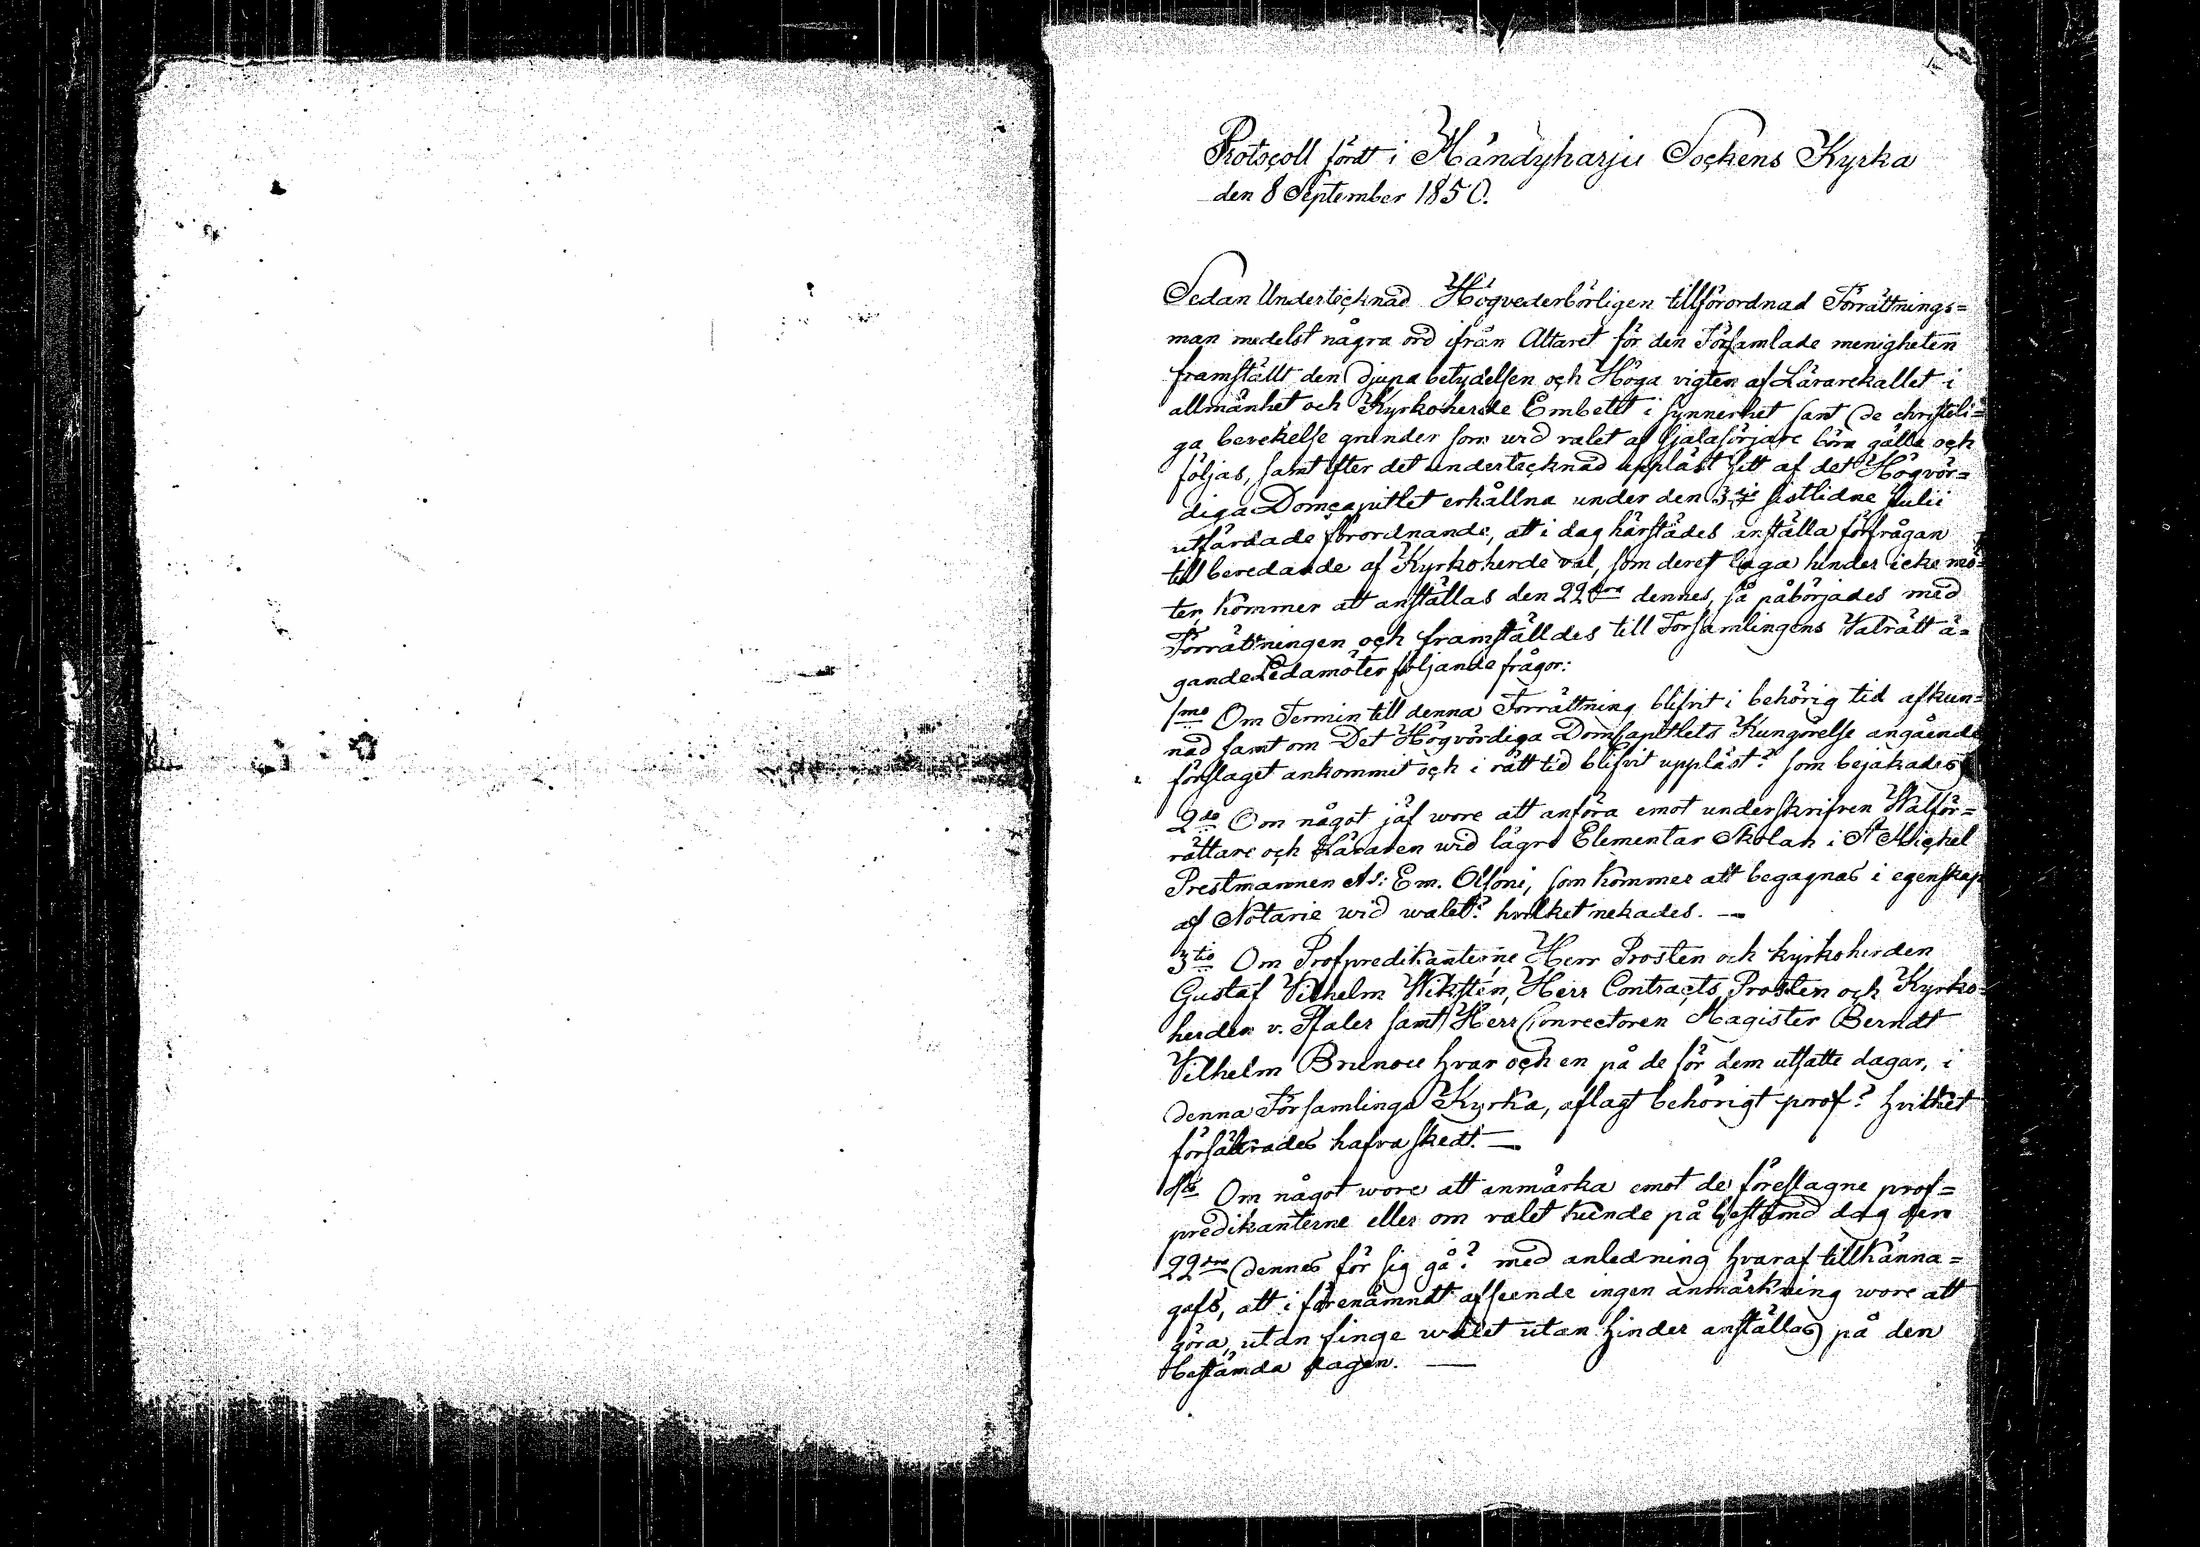 Protocoll fördt i Mändyharju Sockens Kyrka
den 8 September 1850.
Sedan Undertecknad Högvederbörligen tillförordnad Förrättnings=
man medelst några ord ifrån Altaret för den Församlade menigheten
framställt den djupa betydelsen och Höga vigten af Lärarekallet i
allmänhet och Kyrkoherde Embetet i synnerhet samt de christeli=
ga bevekelse grunder som wid valet af sjalasörjare böra gälla och
följas, samt efter det undertecknad uppläst sitt af det Högvör=
diga Domcapitlet erhållna under den 3die sistlidne Julii
utfärdade förordnande, att i dag härstädes anställa förfrågan
till beredande af Kyrkoherde val, som derest laga hinder icke mö=
ter, kommer att anställas den 22dra dennes, så påbörjades med
Förrättningen och framställdes till Församlingens Valrätt ä=
gande Ledamöter följande frågor:
1mo Om Termin till denna Förrättning blifvit i behörig tid afkun=
nad samt om Det Högvördiga Domcapitlets Kungörelse angående
förslaget ankommit och i rätt tid blifvit uppläst? som bejakades
2do Om något jäf wore att anföra emot underskrifven Walför=
rättare och Läraren wid lägre Elementar Skolan i St Michel
Prestmannen And: Em. Olsoni, som kommer att begagnas i egenskap
af Notarie wid walet? hvilket nekades. —
3tio Om Profpredikanterne Herr Prosten och kyrkoherden
Gustaf Vilhelm Wiksten, Herr Contracts Prosten och Kyrko=
herden v. Pfaler samt Herr Conrectoren Magister Berndt
Vilhelm Brunou hvar och en på de för dem utsatte dagar, i
denna Församlings Kyrka, aflagt behörigt prof? hvilket
försäkrades hafva skedt. —
4to Om något wore att anmärka emot de föreslagne prof=
predikanterne eller om valet kunde på bestämd dag den
22dra dennes för sig gå? med anledning hvaraf tillkänna=
gafs, att i förenämndt afseende ingen anmärkning wore att
göra, utan finge walet utan hinder anställas på den
bestämda dagen. —